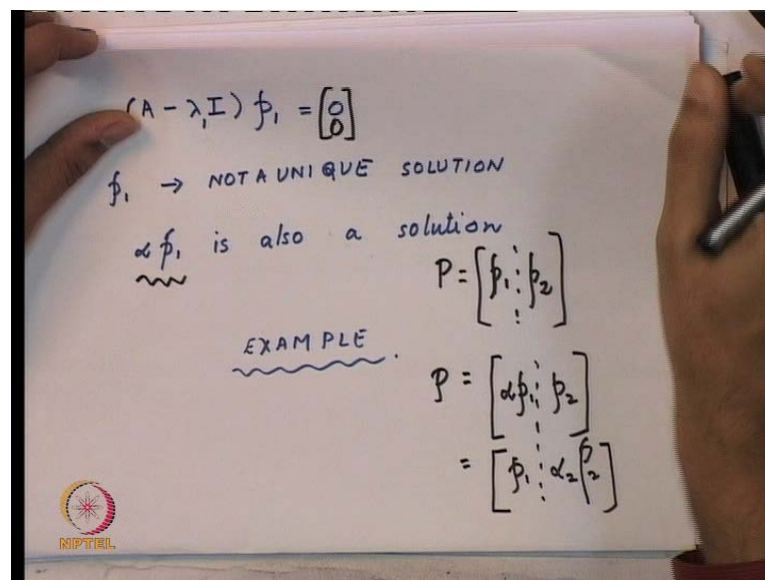 (A - λ₁I) p₁ = [0 0]
p₁ → NOT A UNIQUE SOLUTION
αp₁ is also a solution
P = [p₁ ⋮ p₂]
EXAMPLE.
P = [αp₁ ⋮ p₂]
= [p₁ ⋮ α₂p₂]
NPTEL